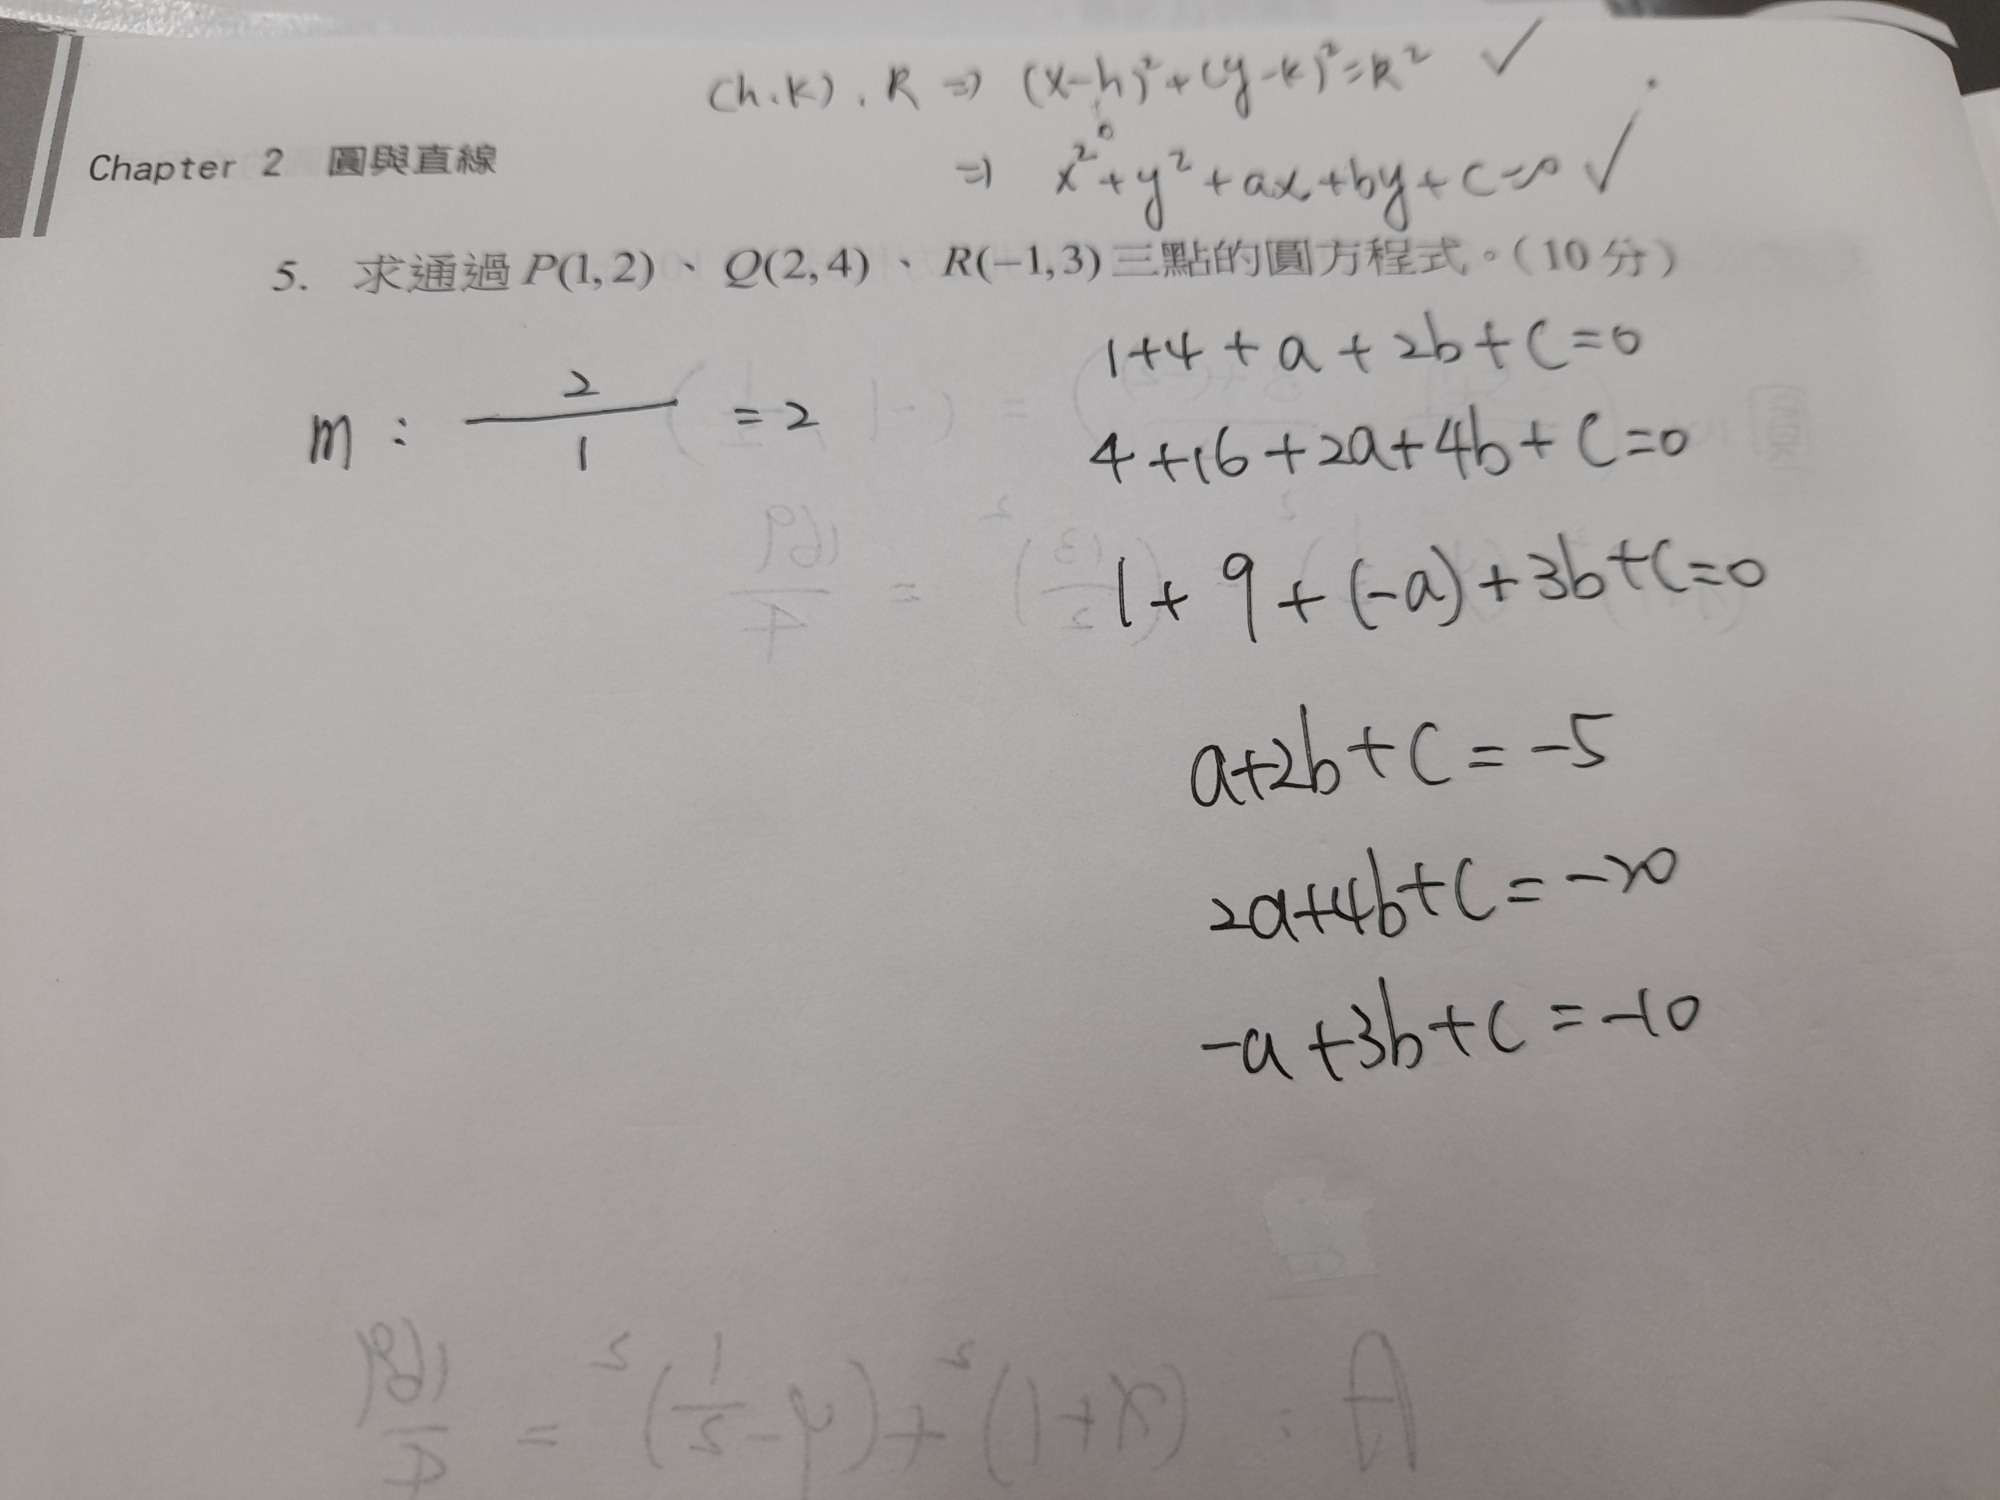 (h.k). R ⇒ (x-h)²+(y-k)²=R² ✓
Chapter 2 圓與直線
⇒ x²+y²+ax+by+c=0 ✓
5. 求通過 P(1,2)、Q(2,4)、R(−1,3) 三點的圓方程式。(10 分)
1+4+a+2b+c=0
m : 2/1 =2
4+16+2a+4b+c=0
1+9+(-a)+3b+c=0
a+2b+c=-5
2a+4b+c=-20
-a+3b+c=-10